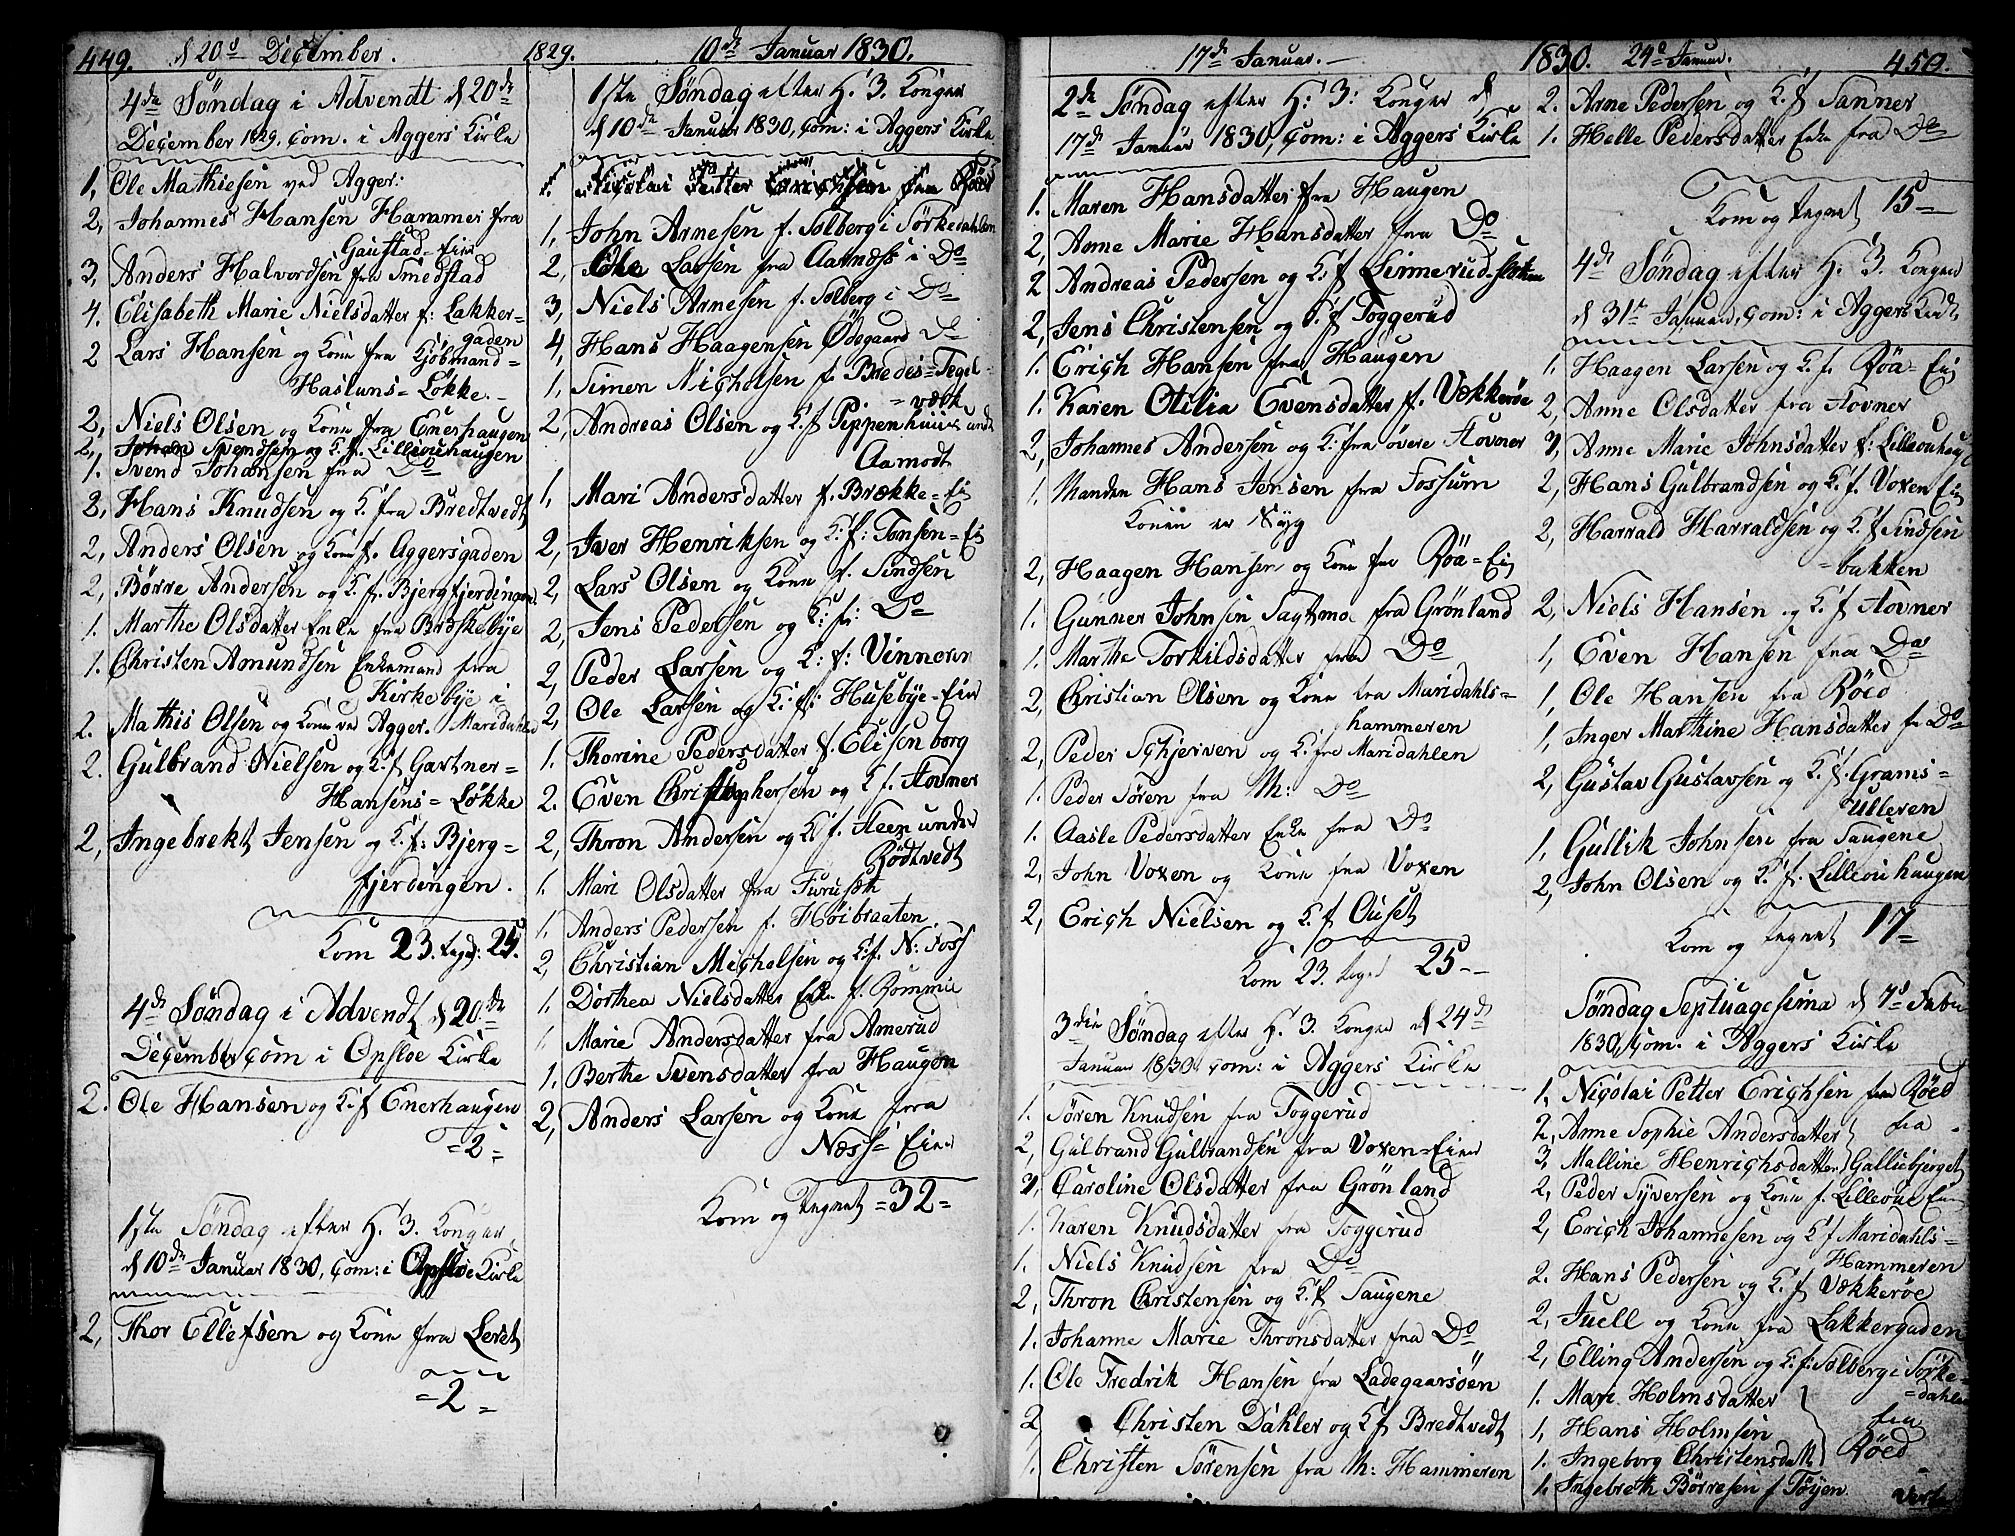 449. d 20d December. 1829.
4de Søndag i Advendt d 20de
December 1829. com. i Aggers Kirke
1, Ole Mathiesen ved Agger.
2, Johannes Hansen Hammer fra
Gaustad-Eier
3, Anders Halvordsen fra Smedstad
4. Elisabeth Marie Nielsdatter f: Lakker=
gaden
2 Lars Hansen og Kone fra Kjøbmand=
Hasluns=Løkke.
2, Niels Olsen og Kone fra Enerhaugen
2, Johan Svendsen og K. f. Lilleouhaugen
1. Svend Johansen fra Do
2, Hans Knudsen og K. fra Bredtvedt
2, Anders Olsen og Kone f. Aggersgaden
2, Børre Andersen og K. fr. Bjergfjerdingen
1. Marthe Olsdatter Enke fra Bræskebye
1. Christen Amundsen Enkemand fra
Kirkebye i
Maridahlen
2. Mathis Olsen og Kone ved Agger.
2. Gulbrand Nielsen og K. f Gartner=
Hansens=Løkke
2, Ingebrekt Jensen og K. f: Bjerg=
fjerdingen.
Kom 23. tegn: 25.
4de Søndag i Advendt d 20de
December com i Opsloe Kirke
2. Ole Hansen og K. f Enerhaugen
=2=
1ste Søndag efter H. 3. Konger
d 10de Januar 1830, com: i Opsloe Kirke
2, Thor Ellefsen og Kone fra Leret
=2=
10de Januar 1830.
1ste Søndag efter H. 3. Konger
d 10de Januar 1830, com: i Aggers Kirke
Nicolai Petter Erichsen fra Røed
1, John Arnesen f. Solberg i Sørkedahlen
2, Ole Larsen fra Aarnæss i Do
3, Niels Arnesen f. Solberg i Do
4, Hans Haagensen Ødegaard Do
1, Simen Nicholsen f. Bredes=Tegl=
=værk
2, Andreas Olsen og K. f Pippenhuus under
Aamodt
1, Mari Andersdatter f. Brække=Ei
2, Iver Henriksen og K. f: Tonsen=Ei
2, Lars Olsen og Kone f. Sindsen
2, Jens Pedersen og K. f: Do
2, Peder Larsen og K: f: Vinneren
2, Ole Larsen og K. f: Husebye=Eier
1. Thorine Pedersdatter f. Elisenborg
2. Even Christophersen og K f. Hovner
2, Thron Andersen og K. f. Steen under
Rødtvedt
1. Mari Olsdatter fra Furuset
1, Anders Pedersen f. Høibraaten
2, Christian Micholsen og K. f. N: Foss
1. Dorthea Nielsdatter Enke f. Rommie
1 Marie Andersdatter fra Amerud
1. Berthe Svensdatter fra Haugen
2, Anders Larsen og Kone fra
Næss Eier
Kom og tegnet =32=
17de Januar. 1830.
2de Søndag efter H: 3: Konger d
17de Januar 1830, com: i Aggers Kirke
1. Maren Hansdatter fra Haugen
2, Anne Marie Hansdatter fra Do
2 Andreas Pedersen og K. f Linnerud
2, Jens Christensen og K. f Toggerud
1. Erich Hansen fra Haugen
1. Karen Otilia Evensdatter f. Vækkerøe
2, Johannes Andersen og K. fra øvre Hovner
1, Manden Hans Jensen fra Fossum
Konen er Syg
2, Haagen Hansen og Kone fra Røa=Ei
1. Gunner Johnsen Sagtmo fra Grønland
1. Marthe Torkildsdatter fra Do
2, Christian Olsen og Kone fra Maridahls=
hammeren
2, Peder Schjerven og K. fra Maridahlen
1. Peder Sören fra M: Do
1. Aasle Pedersdatter Enke fra Do
2, John Voxen og Kone fra Voxen
2, Erich Nielsen og K. f Ouset
Kom 23. tegn 25-
3die Søndag efter H. 3. Konger d 24de
Januar 1830. com: i Aggers Kirke
1. Sören Knudsen fra Toggerud
2, Gulbrand Gulbrandsen fra Voxen=Eier
2, Caroline Olsdatter fra Grönland
1. Karen Knudsdatter fra Toggerud
1. Niels Knudsen fra Do
2, Thron Christensen og K. f Saugene
1. Johanne Marie Thronsdatter fra Do
1. Ole Fredrik Hansen fra Ladegaarsøen
2 Christen Dahler og K f Bredtvedt
1. Christen Sörensen fra M: Hammeren
24de Januar. 450.
2. Arne Pedersen og K. f Sanner
1. Helle Pedersdatter Enke fra Do
Kom og tegnet 15-
4de Søndag efter H. 3. Konger
d 31te Januar, com: i Aggers Kirke
1. Haagen Larsen og K. f. Røa=Ei
2, Anne Olsdatter fra Hovner
3, Anne Marie Johnsdatter f: Lilleouhaug
2, Hans Gulbrandsen og K. f. Voxen Ei
2, Harrald Harraldsen og K. f Sindsen
=bakken
2, Niels Hansen og K. f Hovner
1, Even Hansen fra Do
1, Ole Hansen fra Røed
1, Inger Marthine Hansdatter fr Do
2, Gustav Gustavsen og K. f. Grams=
Ulleren
1, Gullik Johnsen fra Saugene
2, John Olsen og K. f. Lilleouhaugen
Kom og tegnet 17=
Søndag Septuagesima d 7d Febr
1830, com. i Aggers Kirke
1, Nicolai Petter Erichsen fra Røed
2, Anne Sophie Andersdatter fra
3, Malline Henrichsdatter Galliebjerget
2, Peder Syversen og Kone f. Lilleoue Ei
2, Erich Johannesen og K f Maridahls=
Hammeren
2. Hans Pedersen og K. f Vækkerøe
2, Juell og Kone fra Lakkergaden
2, Elling Andersen og K. f: Solberg i Sörke=
=dahlen
1. Mari Holmsdatter
1, Hans Holmsen fra
1. Ingeborg Christensdatt Røed
1. Ingebreth Börresen f Töyen.
Vert